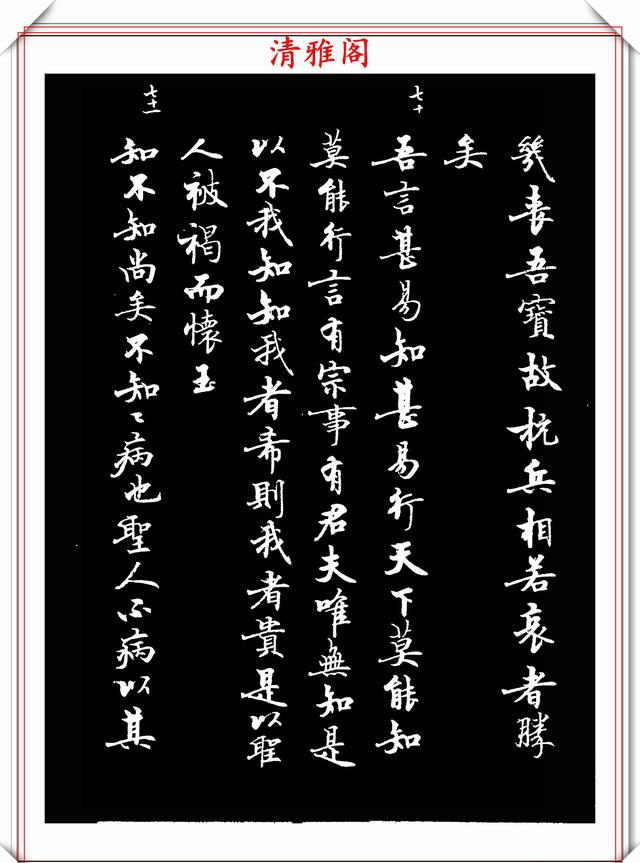 清雅阁
幾喪吾寶故抗兵相若哀者勝
矣
七十
吾言甚易知甚易行天下莫能知
莫能行言有宗事有君夫唯無知是
以不我知知我者希則我者貴是以聖
人被褐而懷玉
七十一
知不知尚矣不知知病也聖人不病以其